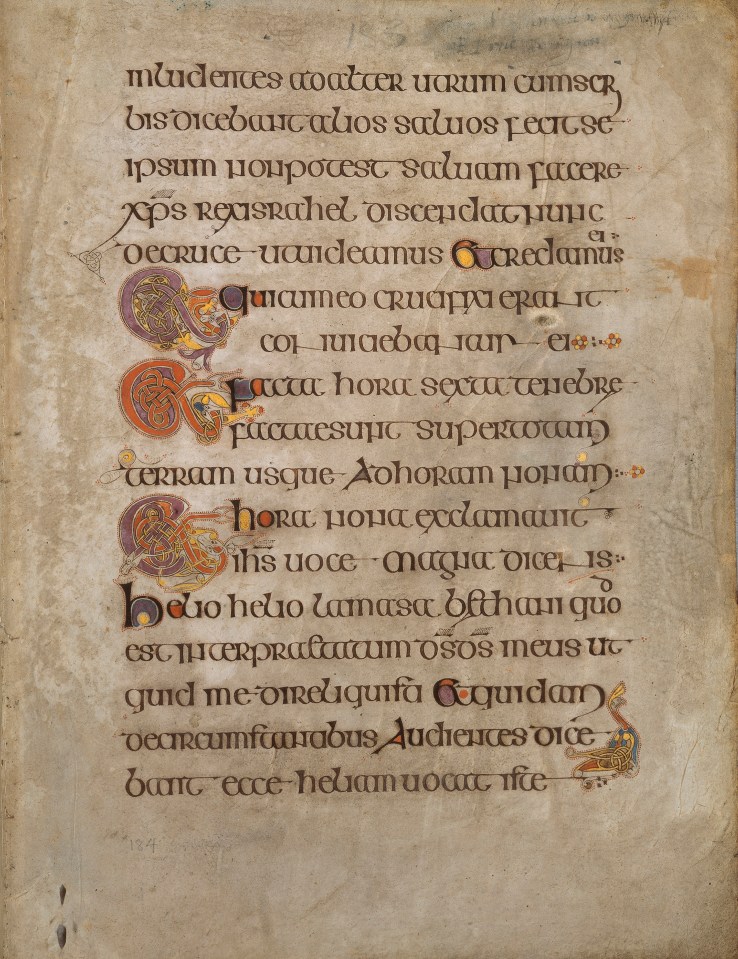 inludentes adalter utrum cumscri
bis dicebant alios saluos fecit se
ipsum non potest saluam facere
xp̄s rex israhel discendat nunc
decruce ut uideamus Et credamus ei:
Et qui cum eo crucifixi erant
conuiciebantur ei
Et facta hora sexta tenebre
factae sunt super totam
terram usque Ad horam nonam:
Et hora nona exclamauit
ihs̄ uoce magna dicens:
helio helio lamasa bethani quod
est interpraetatum d̄s d̄s meus ut
quid me direliquisti Et quidam
decircumstantibus Audientes dice
bant ecce heliam uocat iste
184